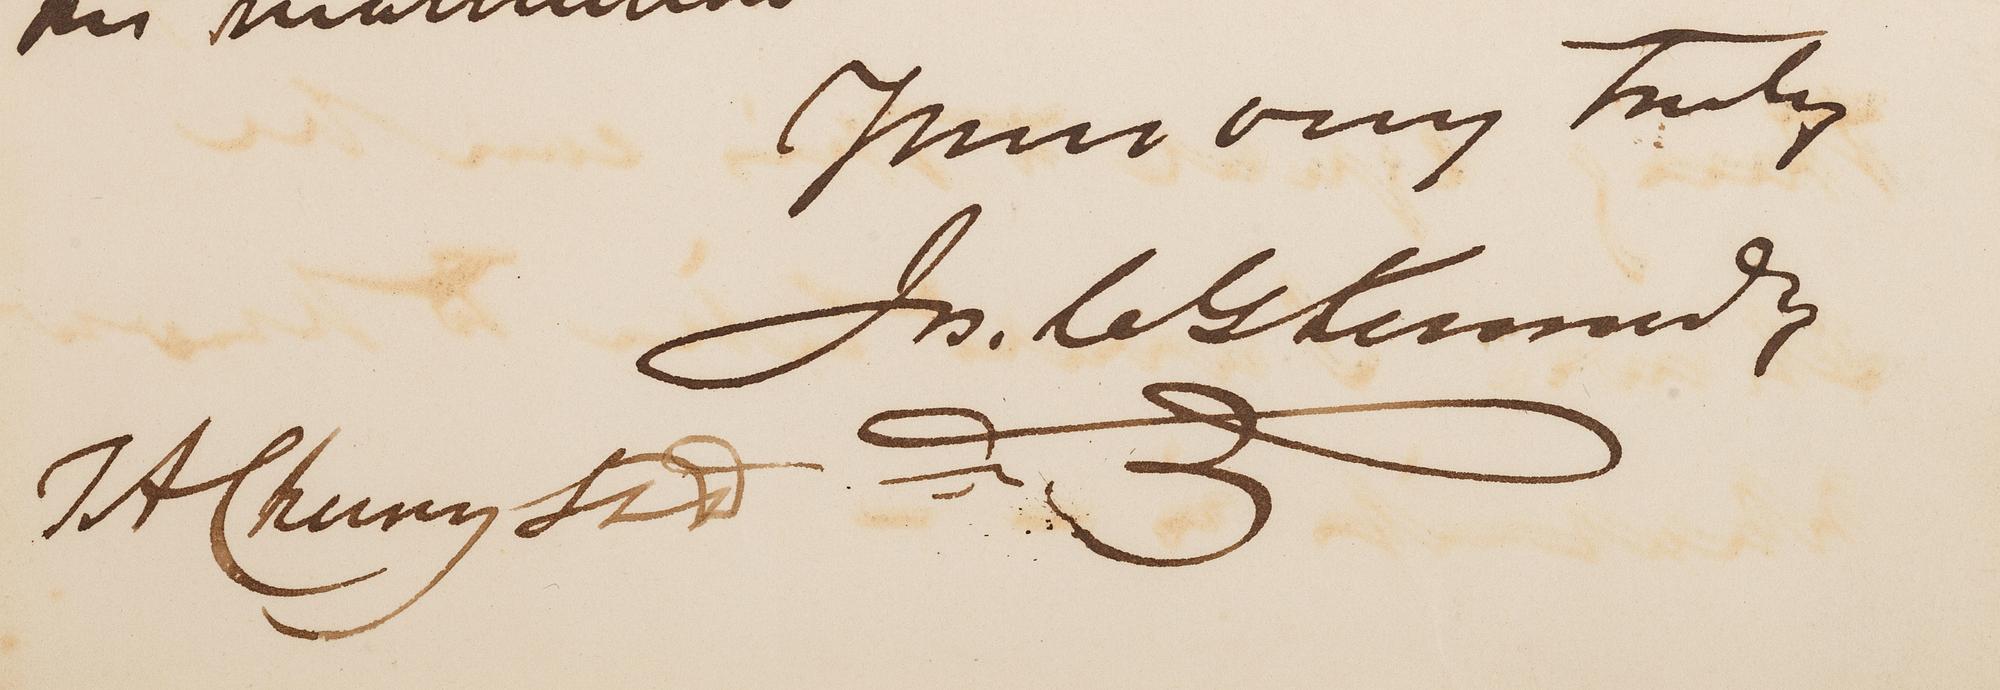 Yours very Truly
Jos. C G Kennedy
T A Cheney